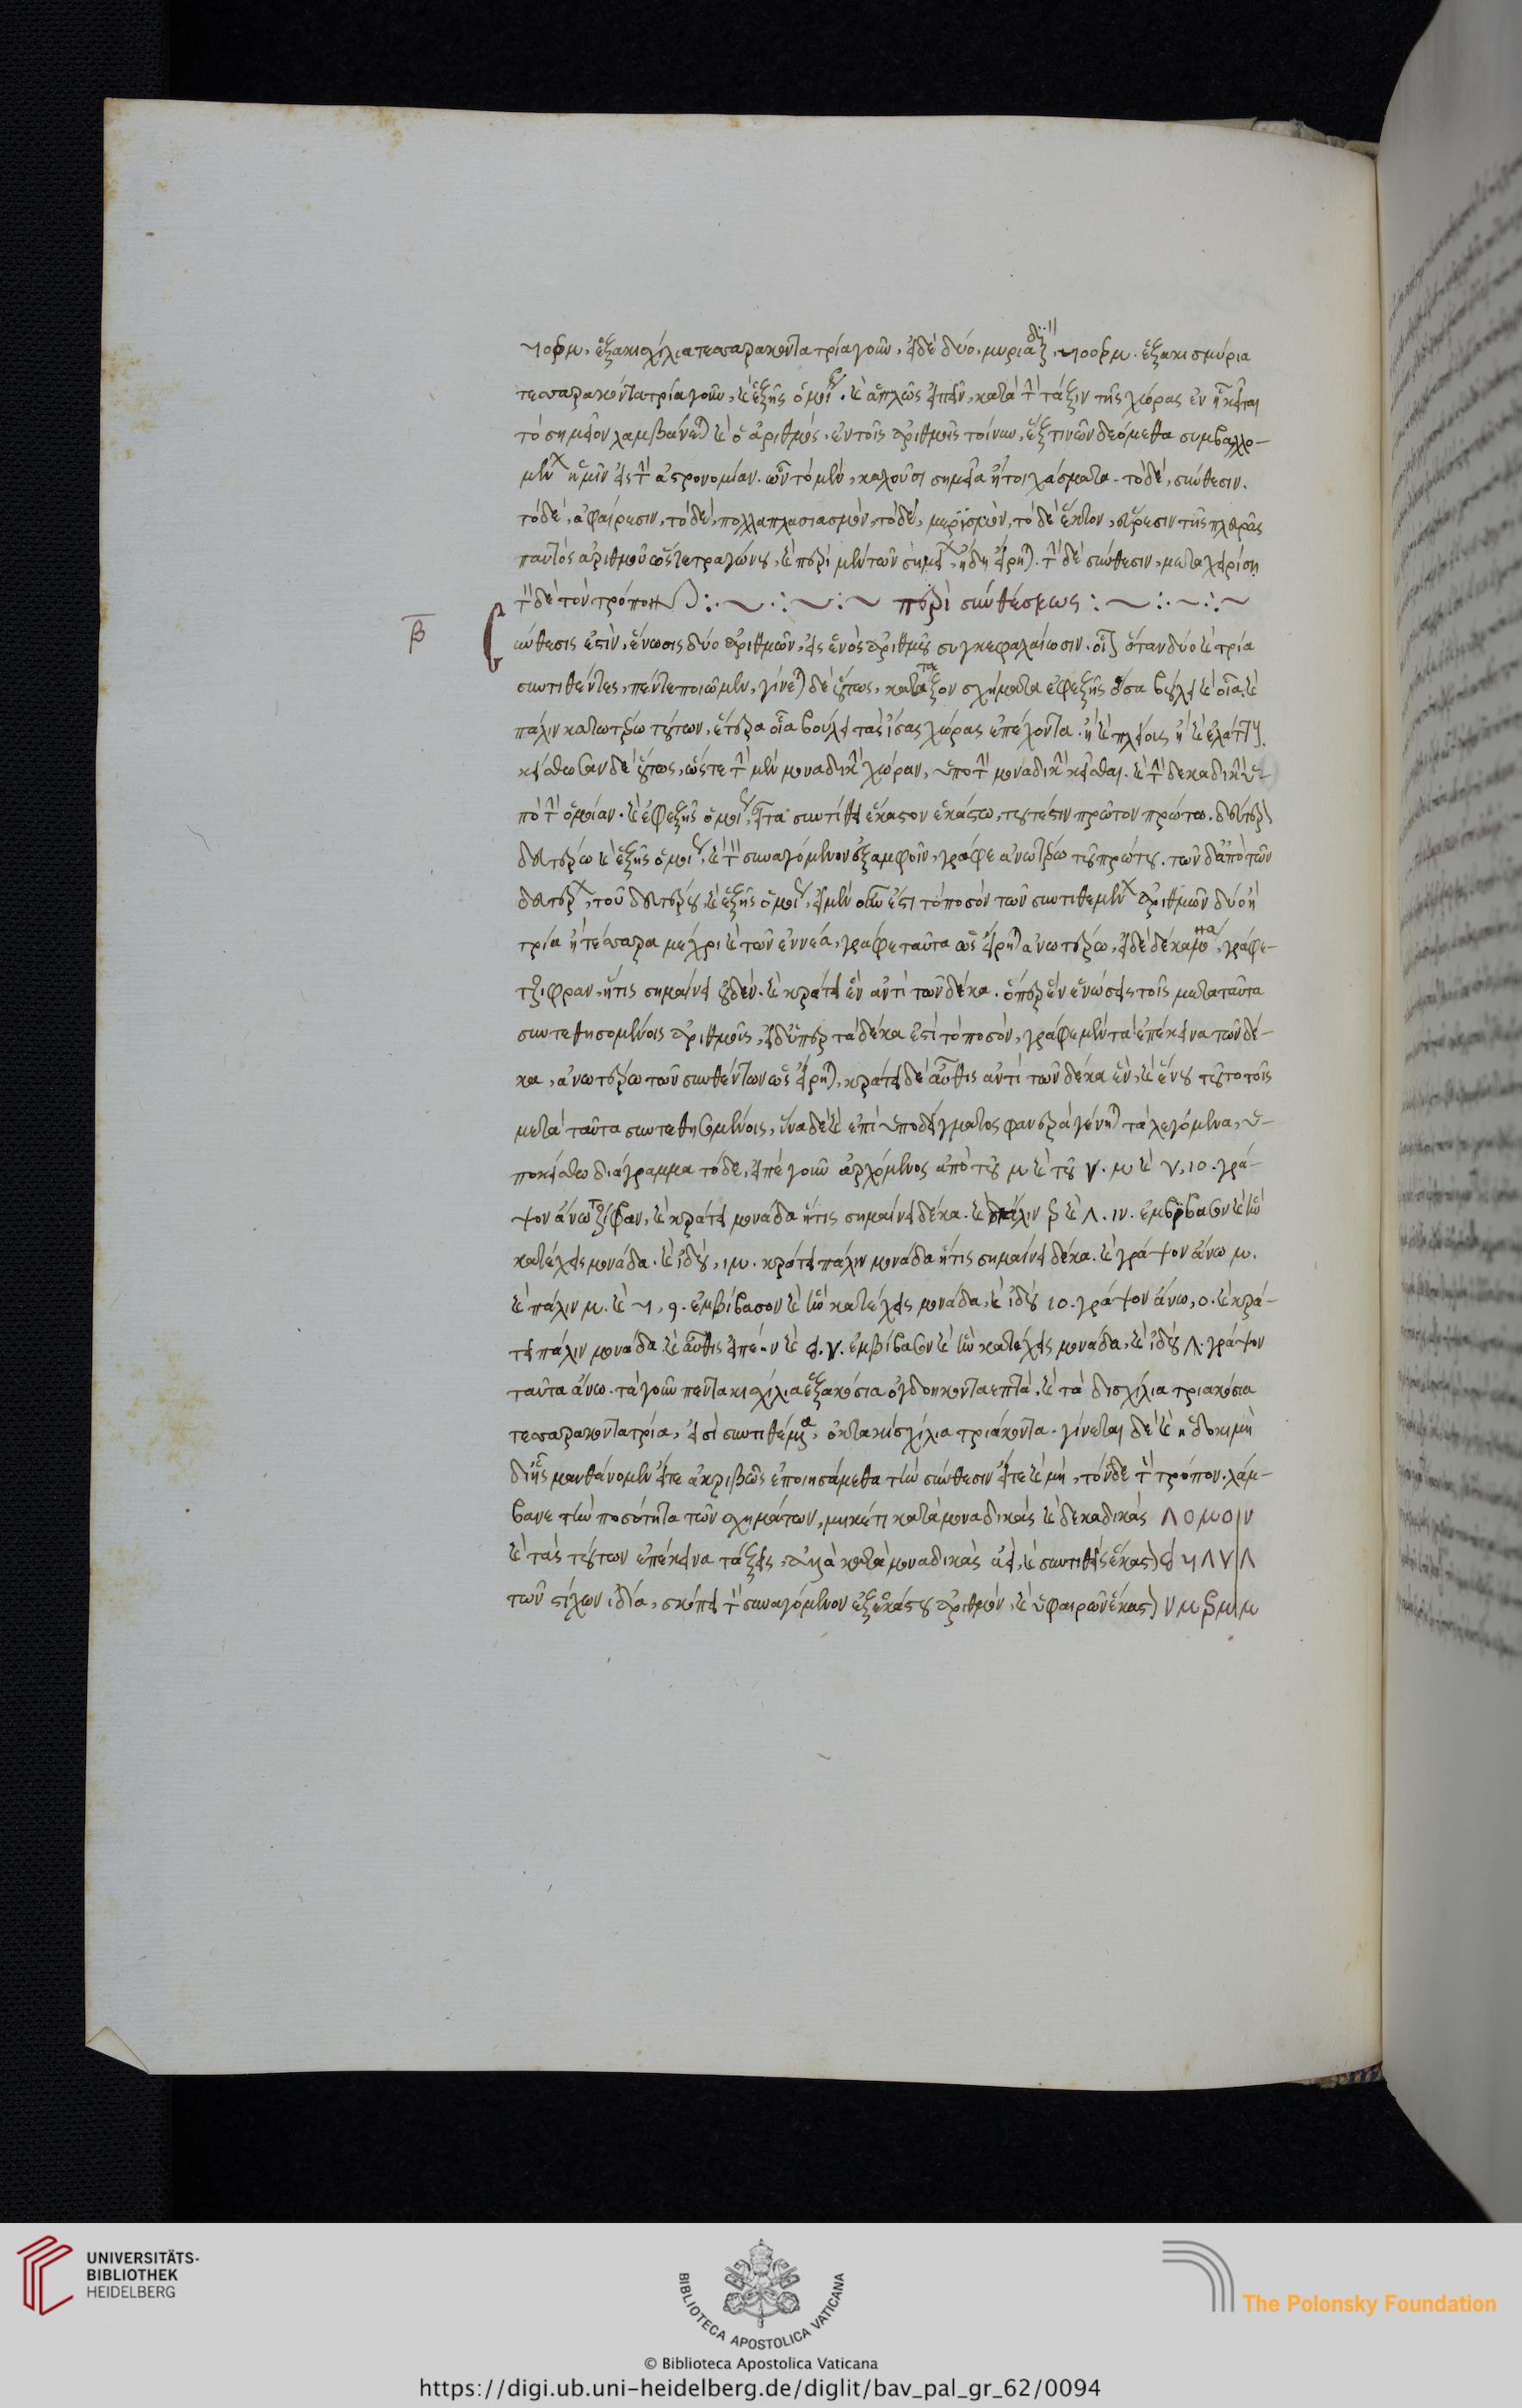 ἑξακισχίλια τεσσαρακοντατρία γοῦν. εἰ δὲ δύο, μυριάδες. ἑξακισμύρια
τεσσαρακοντατρία γοῦν, καὶ ἑξῆς ὁμοίως. καὶ ἁπλῶς εἰπεῖν, κατὰ τὴν τάξιν τῆς χώρας ἐν ᾗ κεῖται
τὸ σημεῖον λαμβάνεται καὶ ὁ ἀριθμός. ἐν τοῖς ἀριθμοῖς τοίνυν, ἕξ τινων δεόμεθα συμβαλλο-
μένων ἡμῖν εἰς τὴν ἀστρονομίαν. ὧν τὸ μὲν, καλοῦσι σημεῖα ἤτοι χάσματα. τὸ δὲ, σύνθεσιν.
τὸ δὲ, ἀφαίρεσιν, τὸ δὲ, πολλαπλασιασμὸν, τὸ δὲ, μερισμὸν, τὸ δὲ ἕκτον, εὕρεσιν τῆς πλευρᾶς
παντὸς ἀριθμοῦ ὡς τετραγώνου, καὶ περὶ μὲν τῶν σημείων, ἤδη εἴρηται. τὴν δὲ σύνθεσιν, μεταχειρίσῃ
τόνδε τὸν τρόπον περὶ συνθέσεως
β
Σύνθεσις ἐστὶν, ἕνωσις δύο ἀριθμῶν, εἰς ἑνὸς ἀριθμοῦ συγκεφαλαίωσιν. οἷον ὅταν δύο καὶ τρία
συντιθέντες, πέντε ποιῶμεν, γίνεται δὲ οὕτως, κατάταξον σχήματα ἐφεξῆς ὅσα βούλει καὶ οἷα, καὶ
πάλιν κατωτέρω τούτων, ἕτερα οἷα βούλει τὰς ἴσας χώρας ἐπέχοντα. ἢ καὶ πλείους ἢ καὶ ἐλάττους.
κείσθωσαν δὲ οὕτως, ὥστε τὴν μὲν μοναδικὴν χώραν, ὑπὸ τὴν μοναδικὴν κεῖσθαι. καὶ τὴν δεκαδικὴν ὑ-
πὸ τὴν ὁμοίαν. καὶ ἐφεξῆς ὁμοίως, εἶτα συντίθει ἕκαστον ἑκάστω, τουτέστιν πρῶτον πρώτω. δεύτερον
δευτέρω καὶ ἑξῆς ὁμοίως, καὶ τὸν συναγόμενον ἐξ ἀμφοῖν, γράφε ἀνωτέρω τοῦ πρώτου. τῶν δ' ἀπὸ τῶν
δευτέρων, τοῦ δευτέρου, καὶ ἑξῆς ὁμοίως, εἰ μὲν οὖν ἐστι τὸ ποσὸν τῶν συντιθεμένων ἀριθμῶν δύο ἢ
τρία ἢ τέσσαρα μέχρι καὶ τῶν ἐννέα, γράφε ταῦτα ὡς εἴρηται ἀνωτέρω, εἰ δὲ δέκα μόνα, γράφε
τζίφραν, ἥτις σημαίνει οὐδέν. καὶ κράτει ἓν ἀντὶ τῶν δέκα. ὅπερ ἓν ἑνώσεις τοῖς μετὰ ταῦτα
συντεθησομένοις ἀριθμοῖς, εἰ δ' ὑπὲρ τὰ δέκα ἐστὶ τὸ ποσὸν, γράφε μὲν τὰ ἐπέκεινα τῶν δέ-
κα, ἀνωτέρω τῶν συνθέντων ὡς εἴρηται, κράτει δὲ αὖθις ἀντὶ τῶν δέκα ἓν, καὶ ἕνου τοῦτο τοῖς
μετὰ ταῦτα συντεθησομένοις, ἵνα δὲ καὶ ἐπὶ ὑποδείγματος φανερὰ γένηται τὰ λεγόμενα, ὑ-
ποκείσθω διάγραμμα τόδε, εἰπὲ γοῦν ἀρχόμενος ἀπὸ τοῦ μ καὶ τοῦ γ. μ καὶ γ, 10. γρά-
ψον ἄνω τζίφραν, καὶ κράτει μονάδα ἥτις σημαίνει δέκα. καὶ πάλιν καὶ Λ. ιν. ἐμβίβασον καὶ ἣν
κατέχεις μονάδα. καὶ ἰδοὺ, ιμ. κράτει πάλιν μονάδα ἥτις σημαίνει δέκα. καὶ γράψον ἄνω μ.
καὶ πάλιν μ. καὶ 9. ἐμβίβασον καὶ ἣν κατέχεις μονάδα, καὶ ἰδοὺ 10. γράψον ἄνω, ο. καὶ κρά-
τει πάλιν μονάδα καὶ αὖθις εἰπὲ ν καὶ ἐμβίβασον καὶ ἣν κατέχεις μονάδα, καὶ ἰδοὺ Λ. γράψον
ταῦτα ἄνω. τὰ γοῦν πεντακισχίλια ἑξακόσια ὀγδοηκονταεπτὰ, καὶ τὰ δισχίλια τριακόσια
τεσσαρακοντατρία, εἰσὶ συντιθέμενα, ὀκτακισχίλια τριάκοντα. γίνεται δὲ καὶ ἡ δοκιμὴ
δι' ἧς μανθάνομεν εἴτε ἀκριβῶς ἐποιησάμεθα τὴν σύνθεσιν εἴτε καὶ μὴ, τόνδε τὸν τρόπον. λάμ-
βανε τὴν ποσότητα τῶν σχημάτων, μηκέτι κατὰ μοναδικὰς καὶ δεκαδικὰς
καὶ τὰς τούτων ἐπέκεινα τάξεις, ἀλλὰ κατὰ μοναδικὰς ἀεὶ, καὶ συντιθεὶς ἕκαστον
τῶν στίχων ἰδία, σκόπει τὸν συναγόμενον ἐξ ἑκάστου ἀριθμὸν, καὶ ὑφαιρῶν ἕκαστον
UNIVERSITÄTS-
BIBLIOTHEK
HEIDELBERG
BIBLIOTECA APOSTOLICA VATICANA
The Polonsky Foundation
© Biblioteca Apostolica Vaticana
https://digi.ub.uni-heidelberg.de/diglit/bav_pal_gr_62/0094